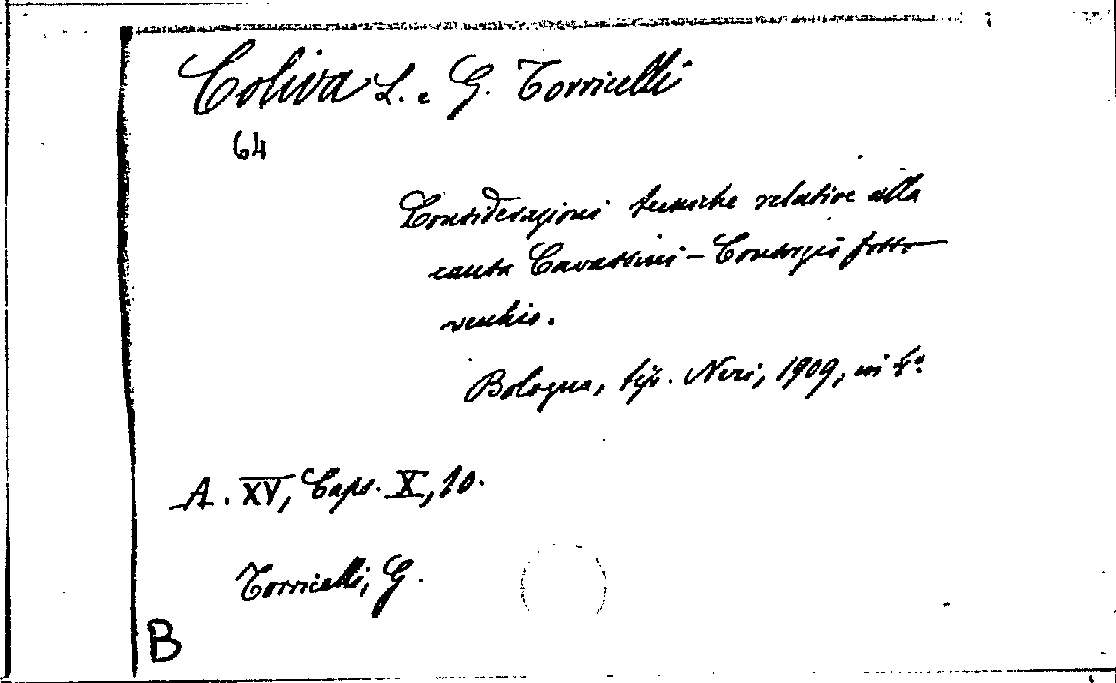 Coliva L. e G. Torricelli
64
Considerazioni tecniche relative alla
causa Cavazzini - Consorzio fosso
vecchio.
Bologna, tip. Neri, 1909, in 4°
A. XV, Caps. X, 10.
Torricelli, G.
B